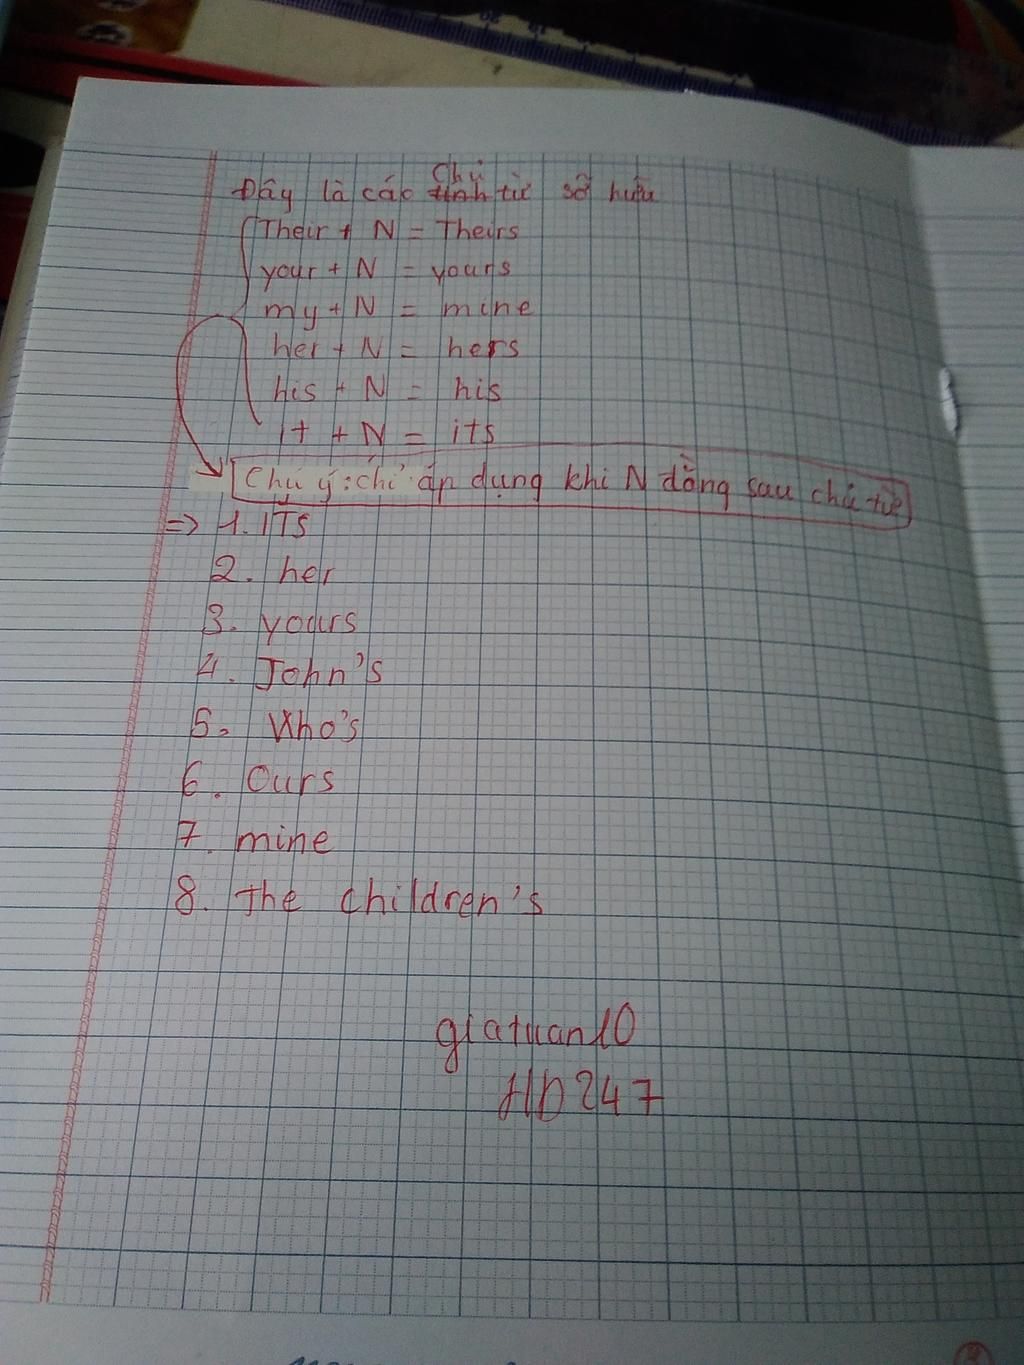 Đây là các tính từ sở hữu
Chủ
Their + N = Theirs
your + N = yours
my + N = mine
her + N = hers
his + N = his
it + N = its
Chú ý: chỉ áp dụng khi N đằng sau chủ từ
=> 1. ITS
2. her
3. yours
4. John's
5. Who's
6. Ours
7. mine
8. the children's
giatuan10
HD247